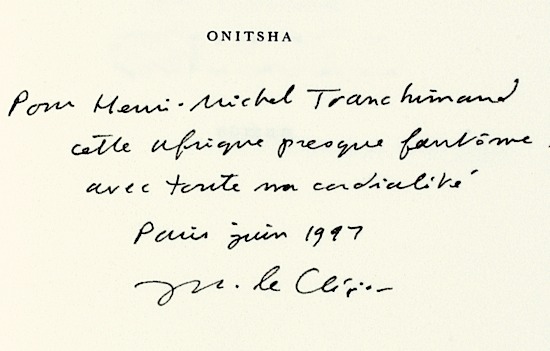 ONITSHA
Pour Henri-Michel Tranchimand
cette Afrique presque fantôme.
avec toute ma cordialité
Paris juin 1997
JM. le Clézio